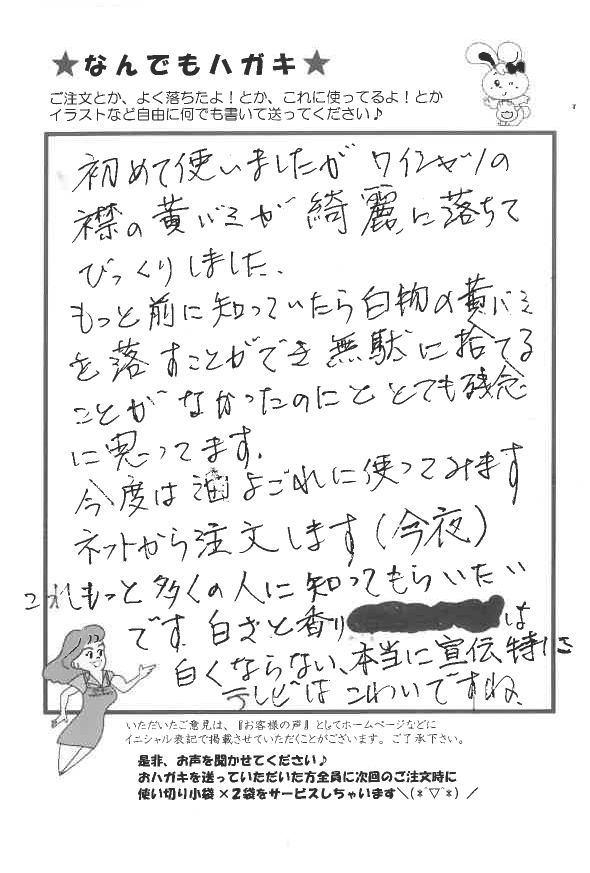 ★なんでもハガキ★
ご注文とか、よく落ちたよ！とか、これに使ってるよ！とか
イラストなど自由に何でも書いて送ってください♪
初めて使いましたが ワイシャツの
襟の黄バミが 綺麗に落ちて
びっくりしました、
もっと前に知っていたら白物の黄バミ
を落すことができ 無駄に捨てる
ことがなかったのにと とても残念
に思ってます.
今度は油よごれに使ってみます
ネットから注文します(今夜)
これもっと多くの人に知ってもらいたい
です. 白さと香り は
白くならない、本当に宣伝、特に
テレビは こわいですね.
いただいたご意見は、『お客様の声』としてホームページなどに
イニシャル表記で掲載させていただくことがございます。ご了承下さい。
是非、お声を聞かせてください♪
おハガキを送っていただいた方全員に次回のご注文時に
使い切り小袋×2袋をサービスしちゃいます＼(*ˆ▽ˆ*)／